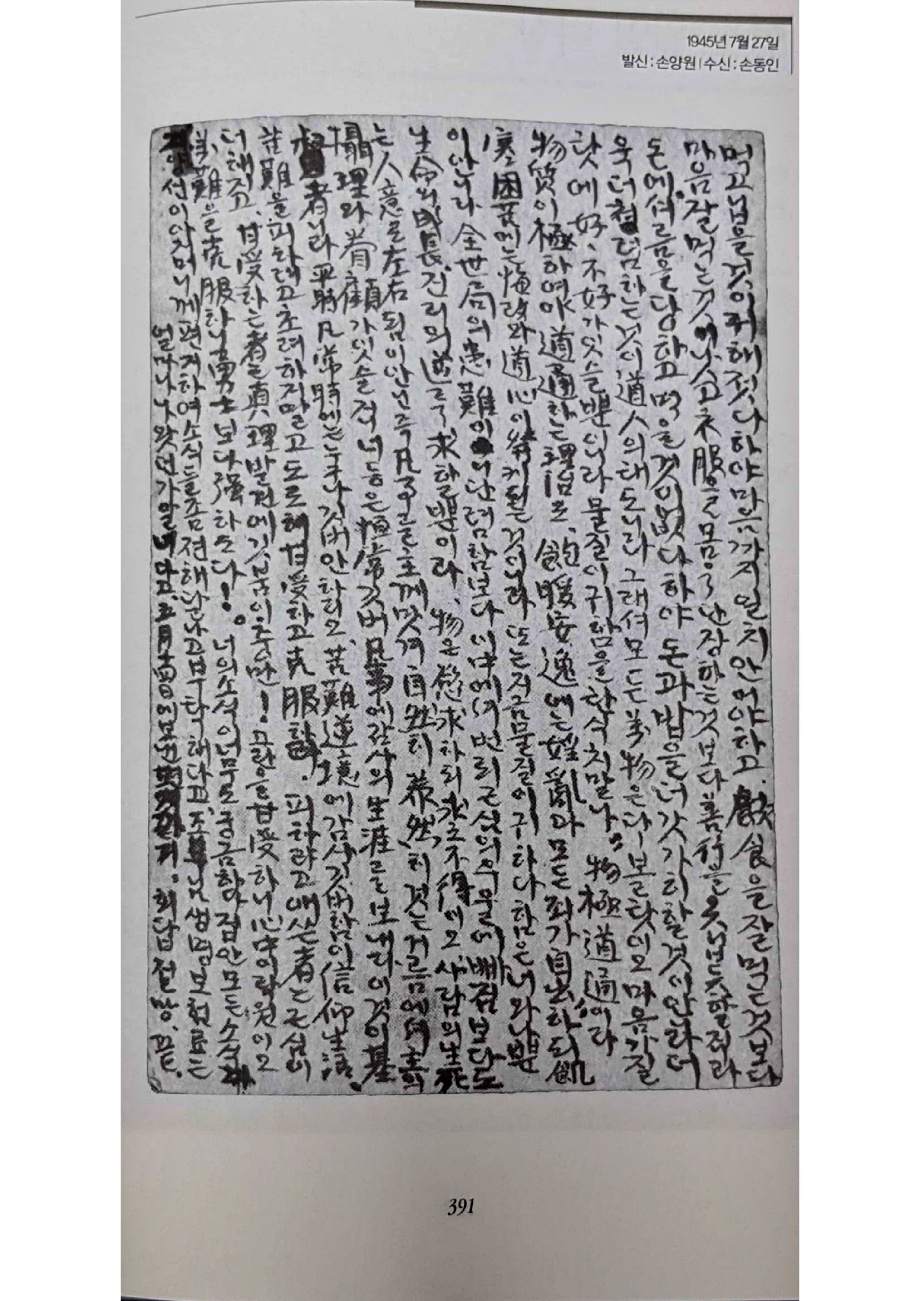 1945년 7월 27일
발신 : 손양원 | 수신 : 손동인
먹고 남을 것이 귀해젓다 하야 마음까지 일치 안어야 하고. 飮食을 잘 먹는 것보다
마음 잘 먹는 것이 나으고 衣服으로 몸 단장하는 것보다 善行을 옷 닙듯 할 저라
돈에 설음을 당하고 먹을 것이 없다 하야 돈과 밥을 더 갓가히 할 것이 안이라 더
욱 더 험하는 것이 道人의 태도니라 그래서 모든 萬物은 다 보를 탓이오 마음가질
탓에 好, 不好가 잇슬 뿐이니라 물질이 귀함을 한식치 말나. 物極道通이라
物質이 極하여야 道通하는 理治로, 飽暖安逸에는 婬亂과 모든 죄가 自出하되 飢
寒困苦에는 悔改와 道心이 發케 되는 것이니라 또는 지금 물질이 구하다 함은 너와 나뿐
이 안니라 全世局의 患難이니 난려함보다 이 中에서 번뢰 근심의
生命의 成長, 진리의 道를 求할 뿐이라. 物은 慾求하되 求之不得이오 사람의 生死
는 人意로 左右됨이 안닌 즉 凡事를 主께 맛겨 自然히 泰然히 것는 거름에서 主의
攝理와 眷顧가 잇슬 적 너 등은 恒常 깃버 凡事에 감사의 生涯를 보내라 이것이 基
督者니라 平時 凡常時에는 누가 깃버 안 하리오. 苦難逆境에 감사 깃버함이 信仰生活.
苦難을 피하랴고 초려하지 말고 도로혀 甘受하고 克服하라. 피하랴고 애쓰는 者는 근심이
더해지고, 甘受하는 者는 眞理 발견에 깃붐이 충만! 고난을 甘受하니 心中이 락원이오
苦難을 克服하니 勇士보다 强하도다! 너의 소식이 너무도 궁금하다 집안 모든 소식과
양선이 아지머니께 편지하여 소식을 좀 전해 달나고 부탁해다고. 조 생명보험료는
얼마나 나왓던가 알녀다고. 五月 의 보낸 편지 회답 절망. 끝.
391